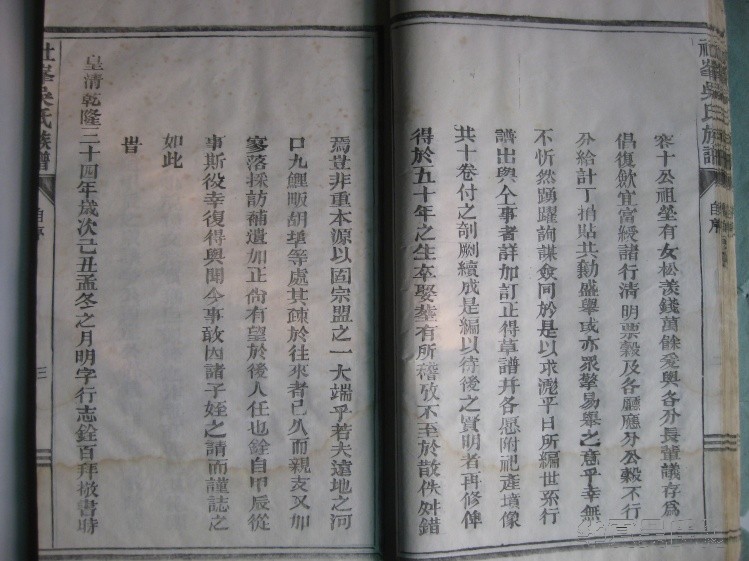 社峯吳氏族譜
自序
宻十公祖塋有女松羡錢萬餘爰與各分長董議存為
倡復飲宜富綬諸行清明票穀及各廳應分公穀不行
分給計丁捐貼共勷盛舉或亦眾擎易舉之意乎幸無
不忻然踴躍詢謀僉同於是以求濎平日所編世系行
譜出與仝事者詳加訂正得草譜并各愿附祀產墳像
共十卷付之剞劂續成是編以待後之賢明者再修俾
得於五十年之生卒娶塟有所稽攷不至於散佚舛錯
焉豈非重本源以固宗盟之一大端乎若夫遠地之河
口九鯉畈胡埂等處其疎於往來者已久而親支又加
寥落採訪補遺加正尙有望於後人任也銓自甲辰從
事斯役幸復得與聞今事敢因諸子姪之請而謹誌之
如此
旹
皇清乾隆三十四年歲次己丑孟冬之月明字行志銓百拜敬書時
社峯吳氏族譜
自序
三